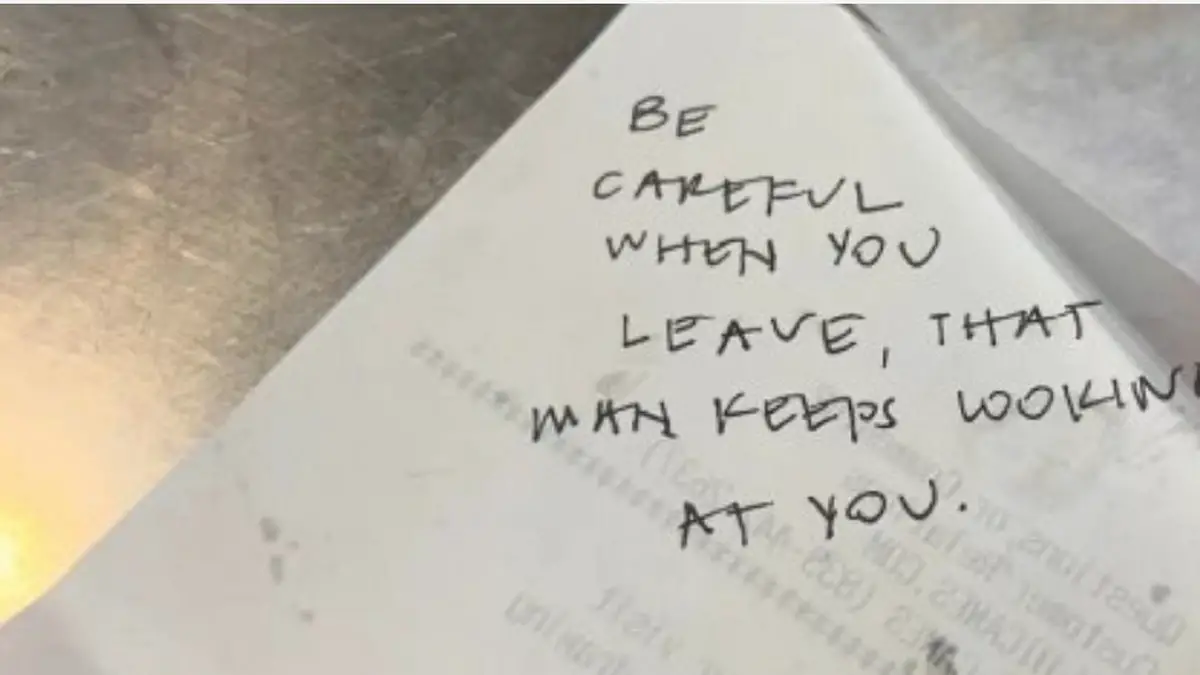 BE
CAREFUL
WHEN YOU
LEAVE, THAT
MAN KEEPS LOOKIN
AT YOU.